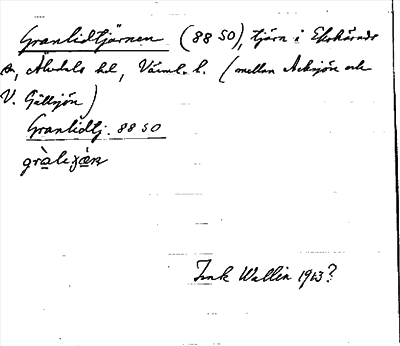 Granlidtjärnen (88 50), tjärn i Ekshärads
sn, Älvdals hd, Värml. l. (mellan Acksjön och
V. Gällsjön)
Granlidtj. 88 50
Ink Wallin 1913?